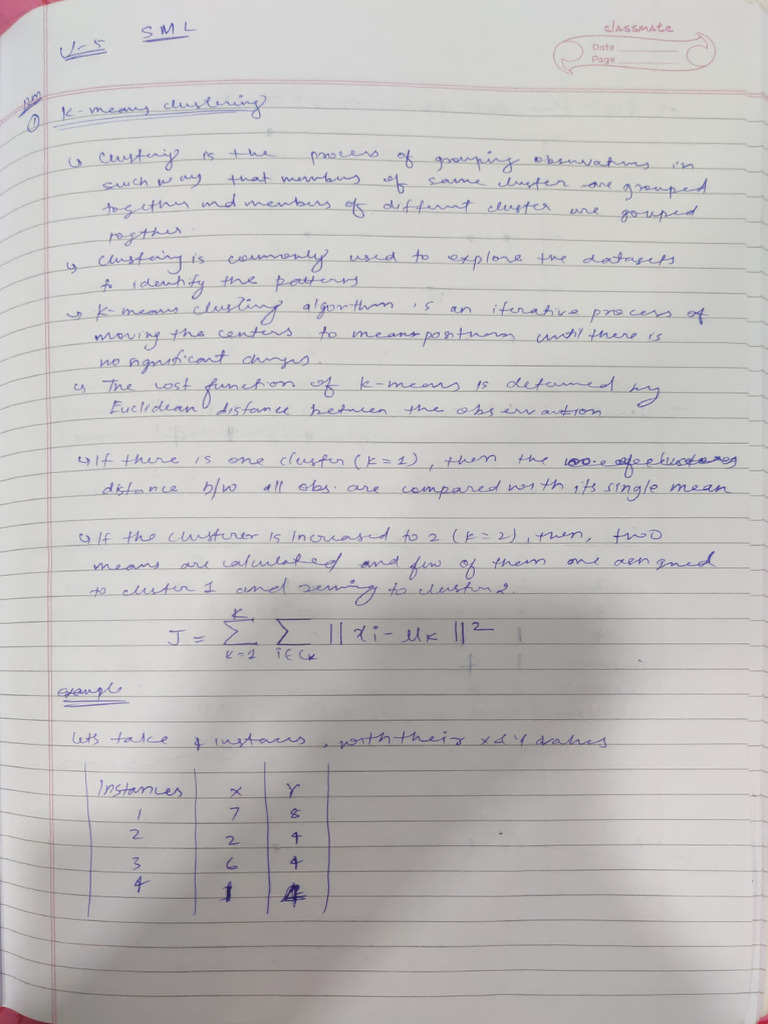 classmate
Date
Page
U-5 SML
① K-means clustering
↳ Clustering is the process of grouping observations in
such way that members of same cluster are grouped
together and members of different cluster are gouped
together.
↳ Clustering is commonly used to explore the datasets
to identify the patterns
↳ K-means clusting algorithm is an iterative process of
moving the centers to mean positions until there is
no significant changes.
↳ The cost function of k-means is detamined by
Euclidean distance between the observation
↳ If there is one cluster (K=1), then the
distance b/w all obs. are compared with its single mean
↳ If the clusterer is increased to 2 (K=2), then, two
means are calculated and few of them are assigned
to cluster 1 and to cluster 2.
J = K Σ k=1 Σ i∈Ck ||xi - μk||²
example
lets take 4 , with their x & y values
Instances x Y
1 7 8
2 2 4
3 6 4
4 1 4